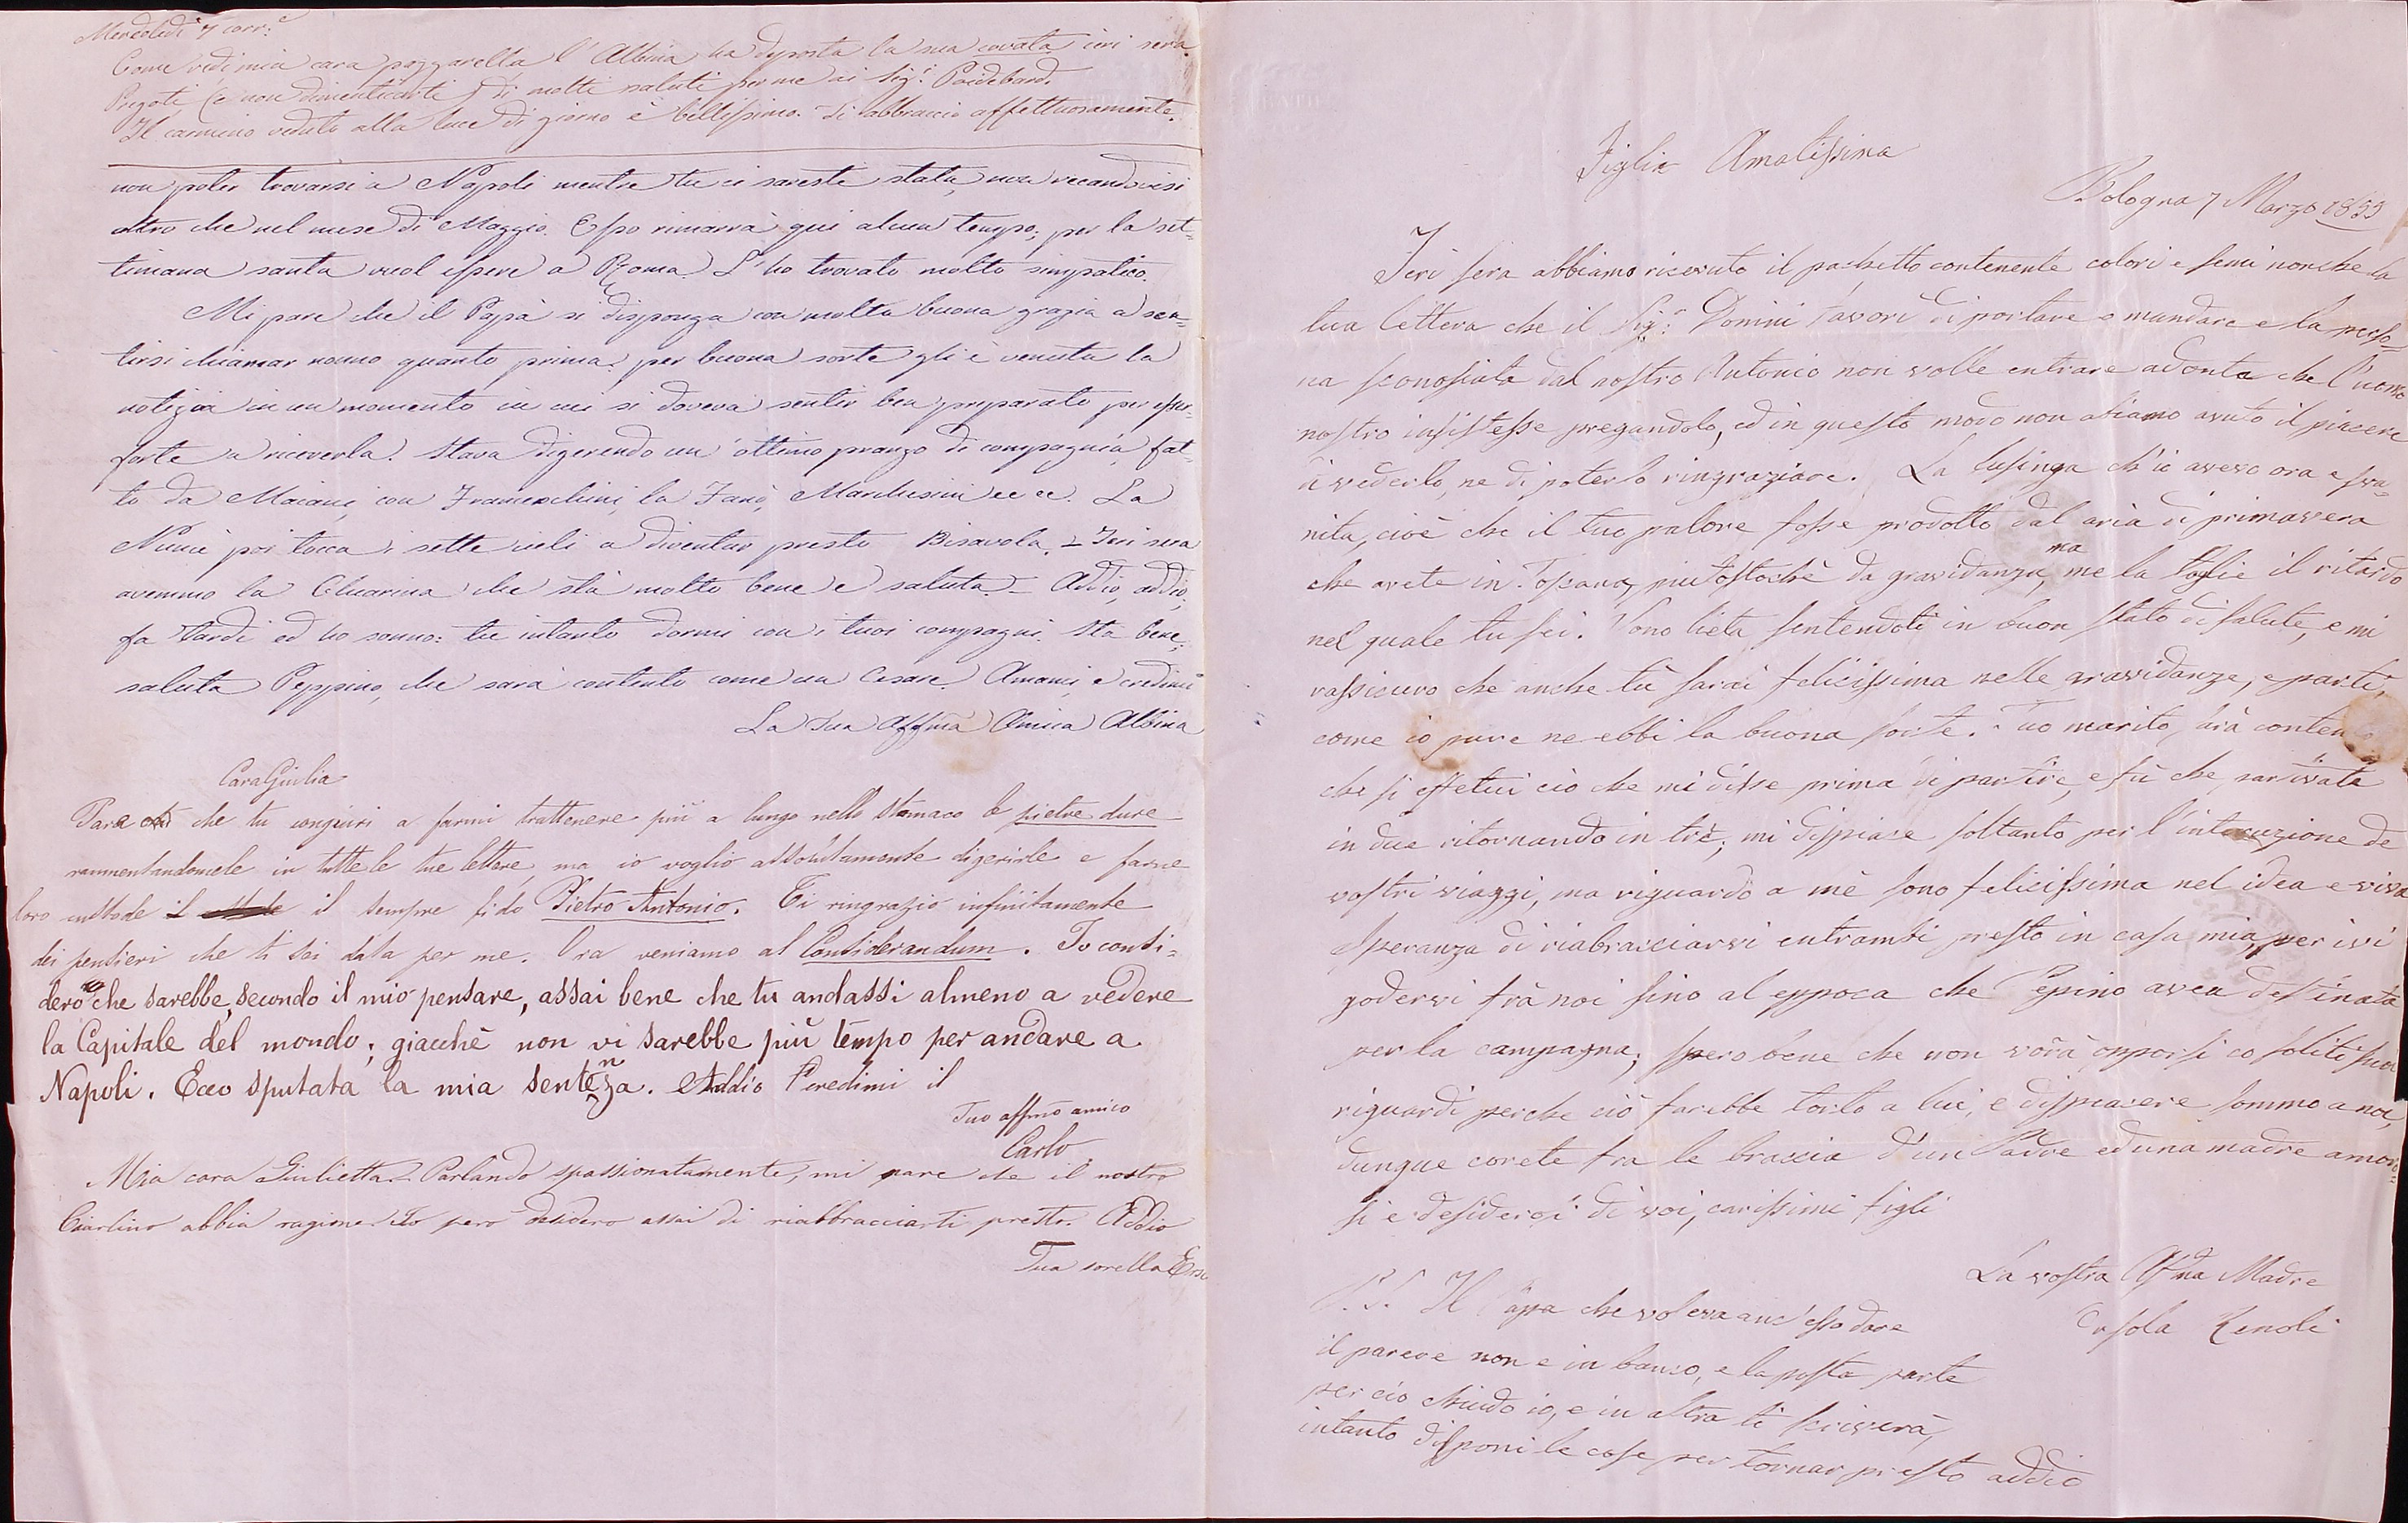 Mercoledì 7 corr.e
Come vedi mia cara pazzarella l'Albina ha deposta la sua covata ieri sera.
Pregoti (e non dimenticarti) di molti saluti per me ai Sig.i
Il carmino veduto alla luce di giorno è bellissimo. Ti abbraccio affettuosamente.
non poter trovarsi a Napoli mentre tu ci sareste stata, non recandovisi
altro che nel mese di Maggio. Esso rimarrà qui alcun tempo; per la set-
timana santa vuol essere a Roma. L'ho trovato molto simpatico.
Mi pare che il Papà si disponga con molta buona grazia a sen-
tirsi chiamar nonno quanto prima: per buona sorte gli è venuta la
notizia in un momento in cui si doveva sentir ben preparato per esser
forte a riceverla. Stava digerendo un'ottimo pranzo di compagnia, fat-
to da Maiani, con la Fanò, Marchesini ec ec. La
poi tocca i sette cieli a diventar presto Bisavola. - Ieri sera
avemmo la Chiarina che stà molto bene e saluta. - Addio, addio;
fa tardi ed ho sonno: tu intanto dormi con i tuoi compagni. Sta bene;
saluta Peppino, che sarà contento come un Cesare. Amami, e credimi
La tua Affma Amica Albina
Cara Giulia
Pare che tu congiuri a farmi trattenere più a lungo nello stomaco le pietre dure
rammentandomele in tutte le tue lettere, ma io voglio assolutamente digerirle e farne
loro custode il il sempre fido Pietro Antonio. Ti ringrazio infinitamente
dei pensieri che ti sei data per me. Ora veniamo al Considerandum. Io consi-
dero che sarebbe, secondo il mio pensare, assai bene che tu andassi almeno a vedere
la Capitale del mondo; giacchè non vi sarebbe più tempo per andare a
Napoli. Ecco sputata la mia sentenza. Addio Credimi il
Tuo affmo amico
Carlo.
Mia cara Giulietta. Parlando spassionatamente, mi pare che il nostro
Carlino abbia ragione. Io però desidero assai di riabbracciarti presto. Addio
Tua sorella
Figlia Amatissima
Bologna 7 Marzo 1855
Jeri sera abbiamo ricevuto il pachetto contenente colori e semi nonche la
tua lettera che il Sig.r Domini favorì di portare o mandare e la perso-
na sconosciuta dal nostro Antonio non volle entrare adonta che l'uomo
nostro insistesse pregandolo, ed in questo modo non abiamo avuto il piacere
di vederlo, ne di poterlo ringraziare. La lusinga ch'io avevo ora e sva-
nita, cioè che il tuo palore fosse prodotto dal aria di primavera
che avete in Toscana, piutostochè da gravidanza, ma me la toglie il ritardo
nel quale tu sei. Sono lieta sentendoti in buon stato di salute, e mi
rassicuro che anche tù sarai felicissima nelle gravidanze, e parti,
come io pure ne ebbi la buona sorte. Tuo marito, sarà contento
che si effetui ciò che mi disse prima di partire, e fù che, partivate
in due ritornando in trè; mi dispiace soltanto per l'interuzione de
vostri viaggi, ma riguardo a mè sono felicissima nel idea e viva
speranza di riabracciarvi entrambi presto in casa mia, per ivi
godervi frà noi sino al eppoca che Pepino avea destinata
per la campagna; spero bene che non vorà opporsi co soliti suoi
riguardi perche ciò farebbe torto a lui, e dispiacere sommo a noi,
dunque corete fra le braccia d'un Padre ed una madre amoro-
si e desiderosi di voi, carissimi figli
La vostra Affma Madre
P.S. Il Papa che voleva anc'esso dare
il parere non e in banco, e la posta parte
per cio chiudo io, e in altra ti scriverà,
intanto disponi le cose per tornar presto addio